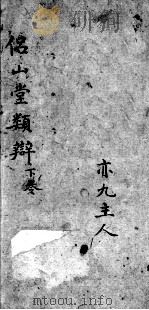 侣山堂類辯下卷
亦九主人
mtoou.info